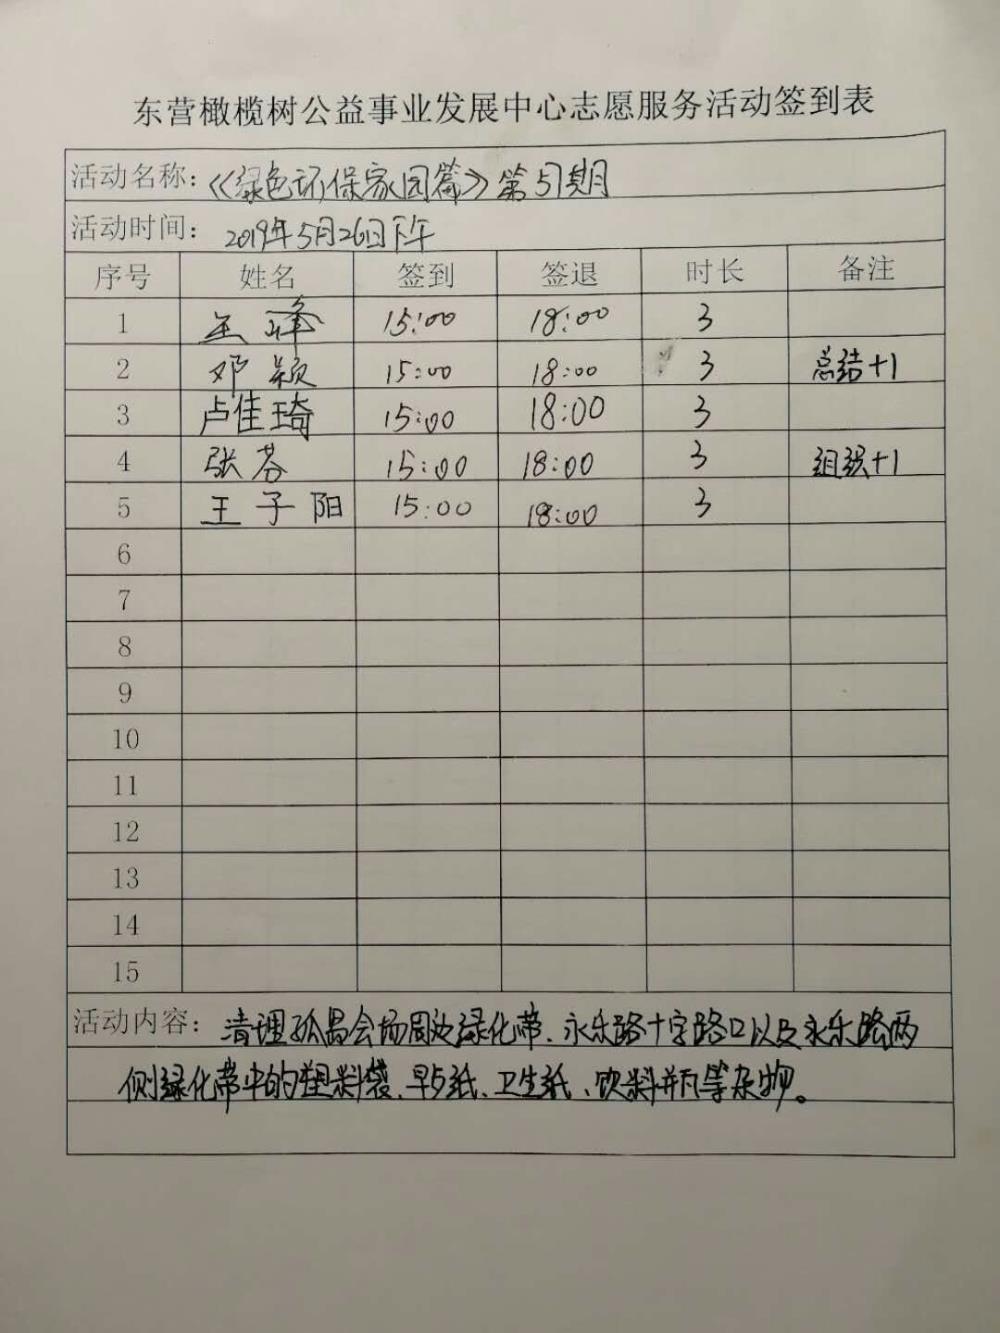 东营橄榄树公益事业发展中心志愿服务活动签到表
活动名称：《绿色环保家园篇》第51期
活动时间：2019年5月26日下午
序号 姓名 签到 签退 时长 备注
1 王峰 15:00 18:00 3
2 邓颖 15:00 18:00 3 总结+1
3 卢佳琦 15:00 18:00 3
4 张芬 15:00 18:00 3 组织+1
5 王子阳 15:00 18:00 3
6
7
8
9
10
11
12
13
14
15
活动内容：清理孤岛会场周边绿化带、永乐路十字路口以及永乐路两
侧绿化带中的塑料袋、卫生纸、饮料瓶等杂物。